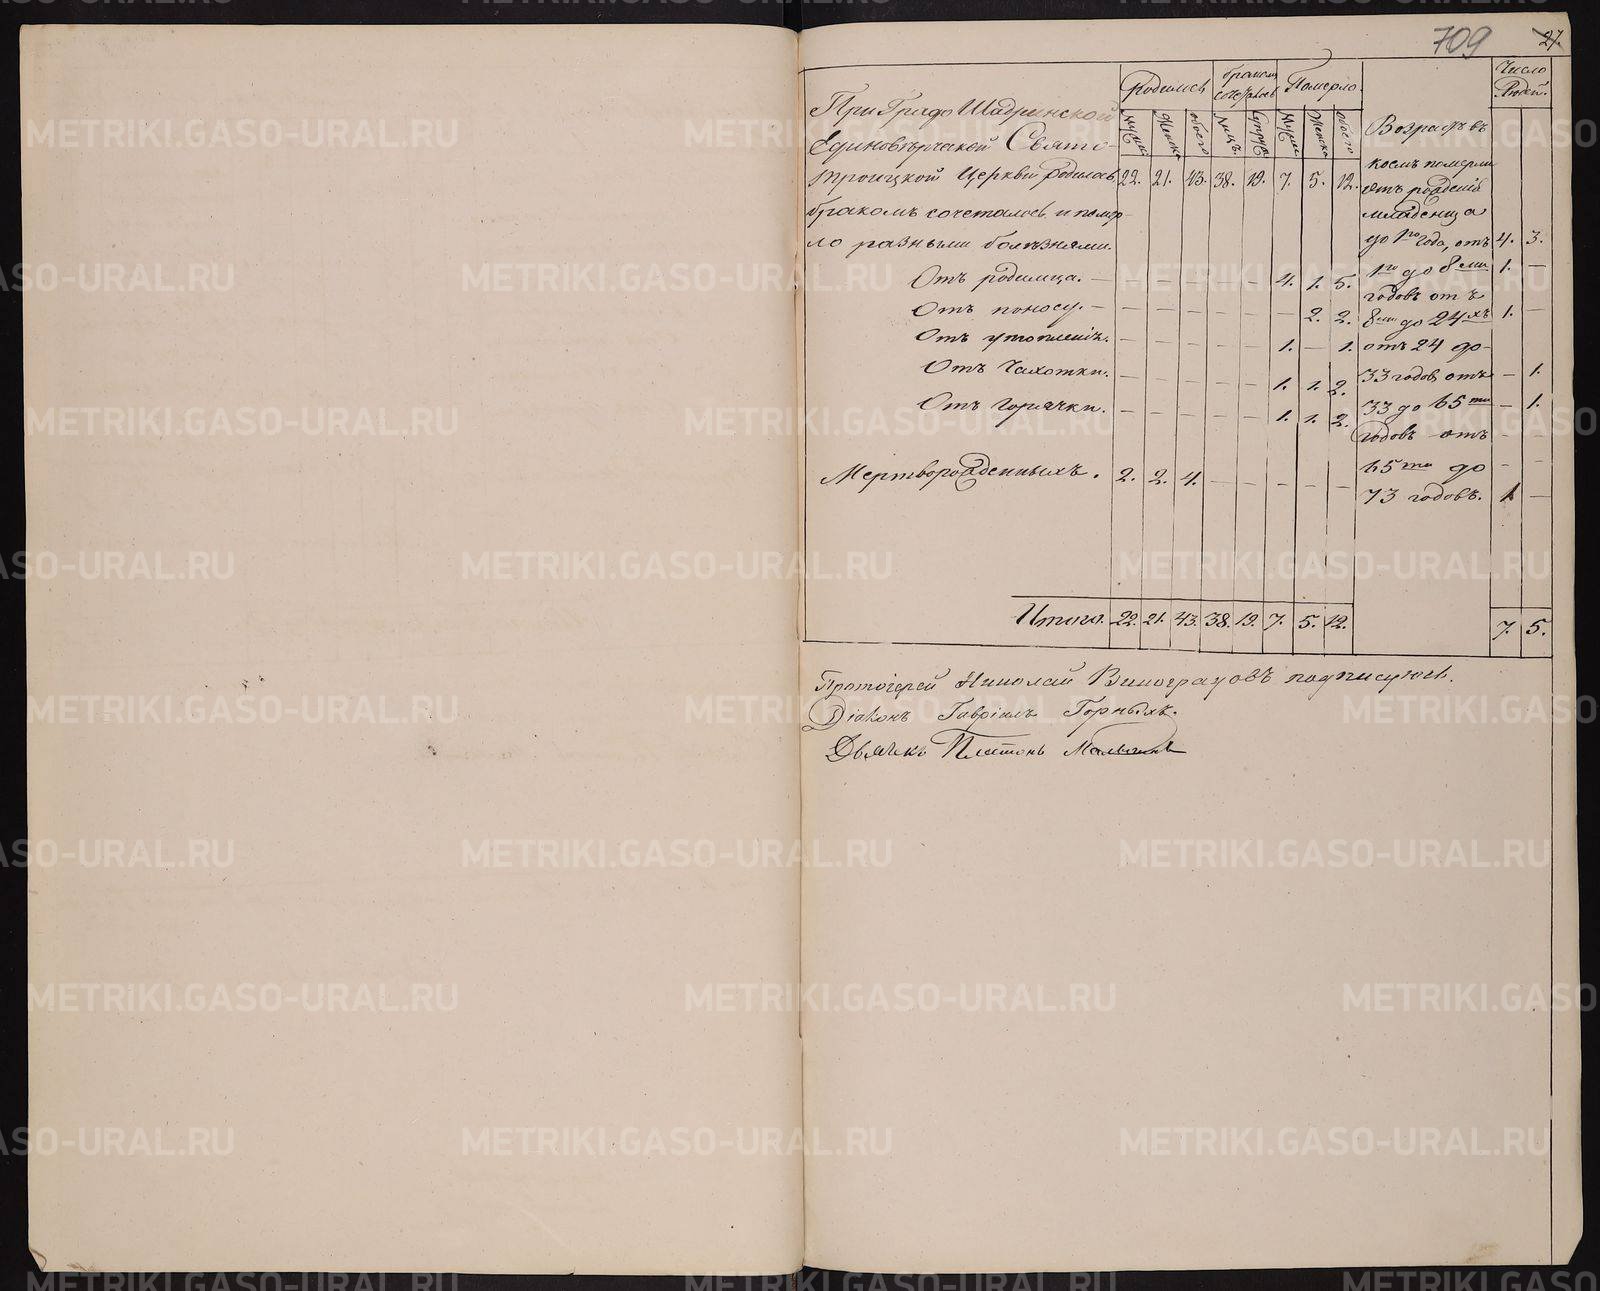 709 27.
При Градо Шадринской
Единоверческой Свято-
троицкой Церкви родилось
бракомъ сочеталось и помер-
ло разными болезнями.
Родилось
Мужск
Женск
обоего
браком сочеталось
Лицъ.
Супруж
Померло.
Мужск
Женск
обоего
22. 21. 43. 38. 19. 7. 5. 12.
Отъ родимца. — — — — — — 4. 1. 5.
Отъ поносу. — — — — — — — 2. 2.
Отъ утопленія. — — — — — 1. — 1.
Отъ Чахотки. — — — — — 1. 1. 2.
Отъ Горячки. — — — — — 1. 1. 2.
Мертворожденныхъ. 2. 2. 4. — — — — —
Итого. 22. 21. 43. 38. 19. 7. 5. 12.
Возрастъ въ
коемъ померли
отъ рожденія
младенца
до 1го года, отъ 4. 3.
1го до 8ми 1. —
годовъ отъ
8ми до 24хъ 1. —
отъ 24 до
33 годов, отъ — 1.
33 до 65ти — 1.
годовъ отъ — —
65ти до — —
73 годовъ. 1 —
Число
Людей.
7. 5.
Протоіерей Николай Виноградовъ подписуюсь.
Діаконъ Гавріилъ Горныхъ.
Дьячекъ Платонъ
METRIKI.GASO-URAL.RU